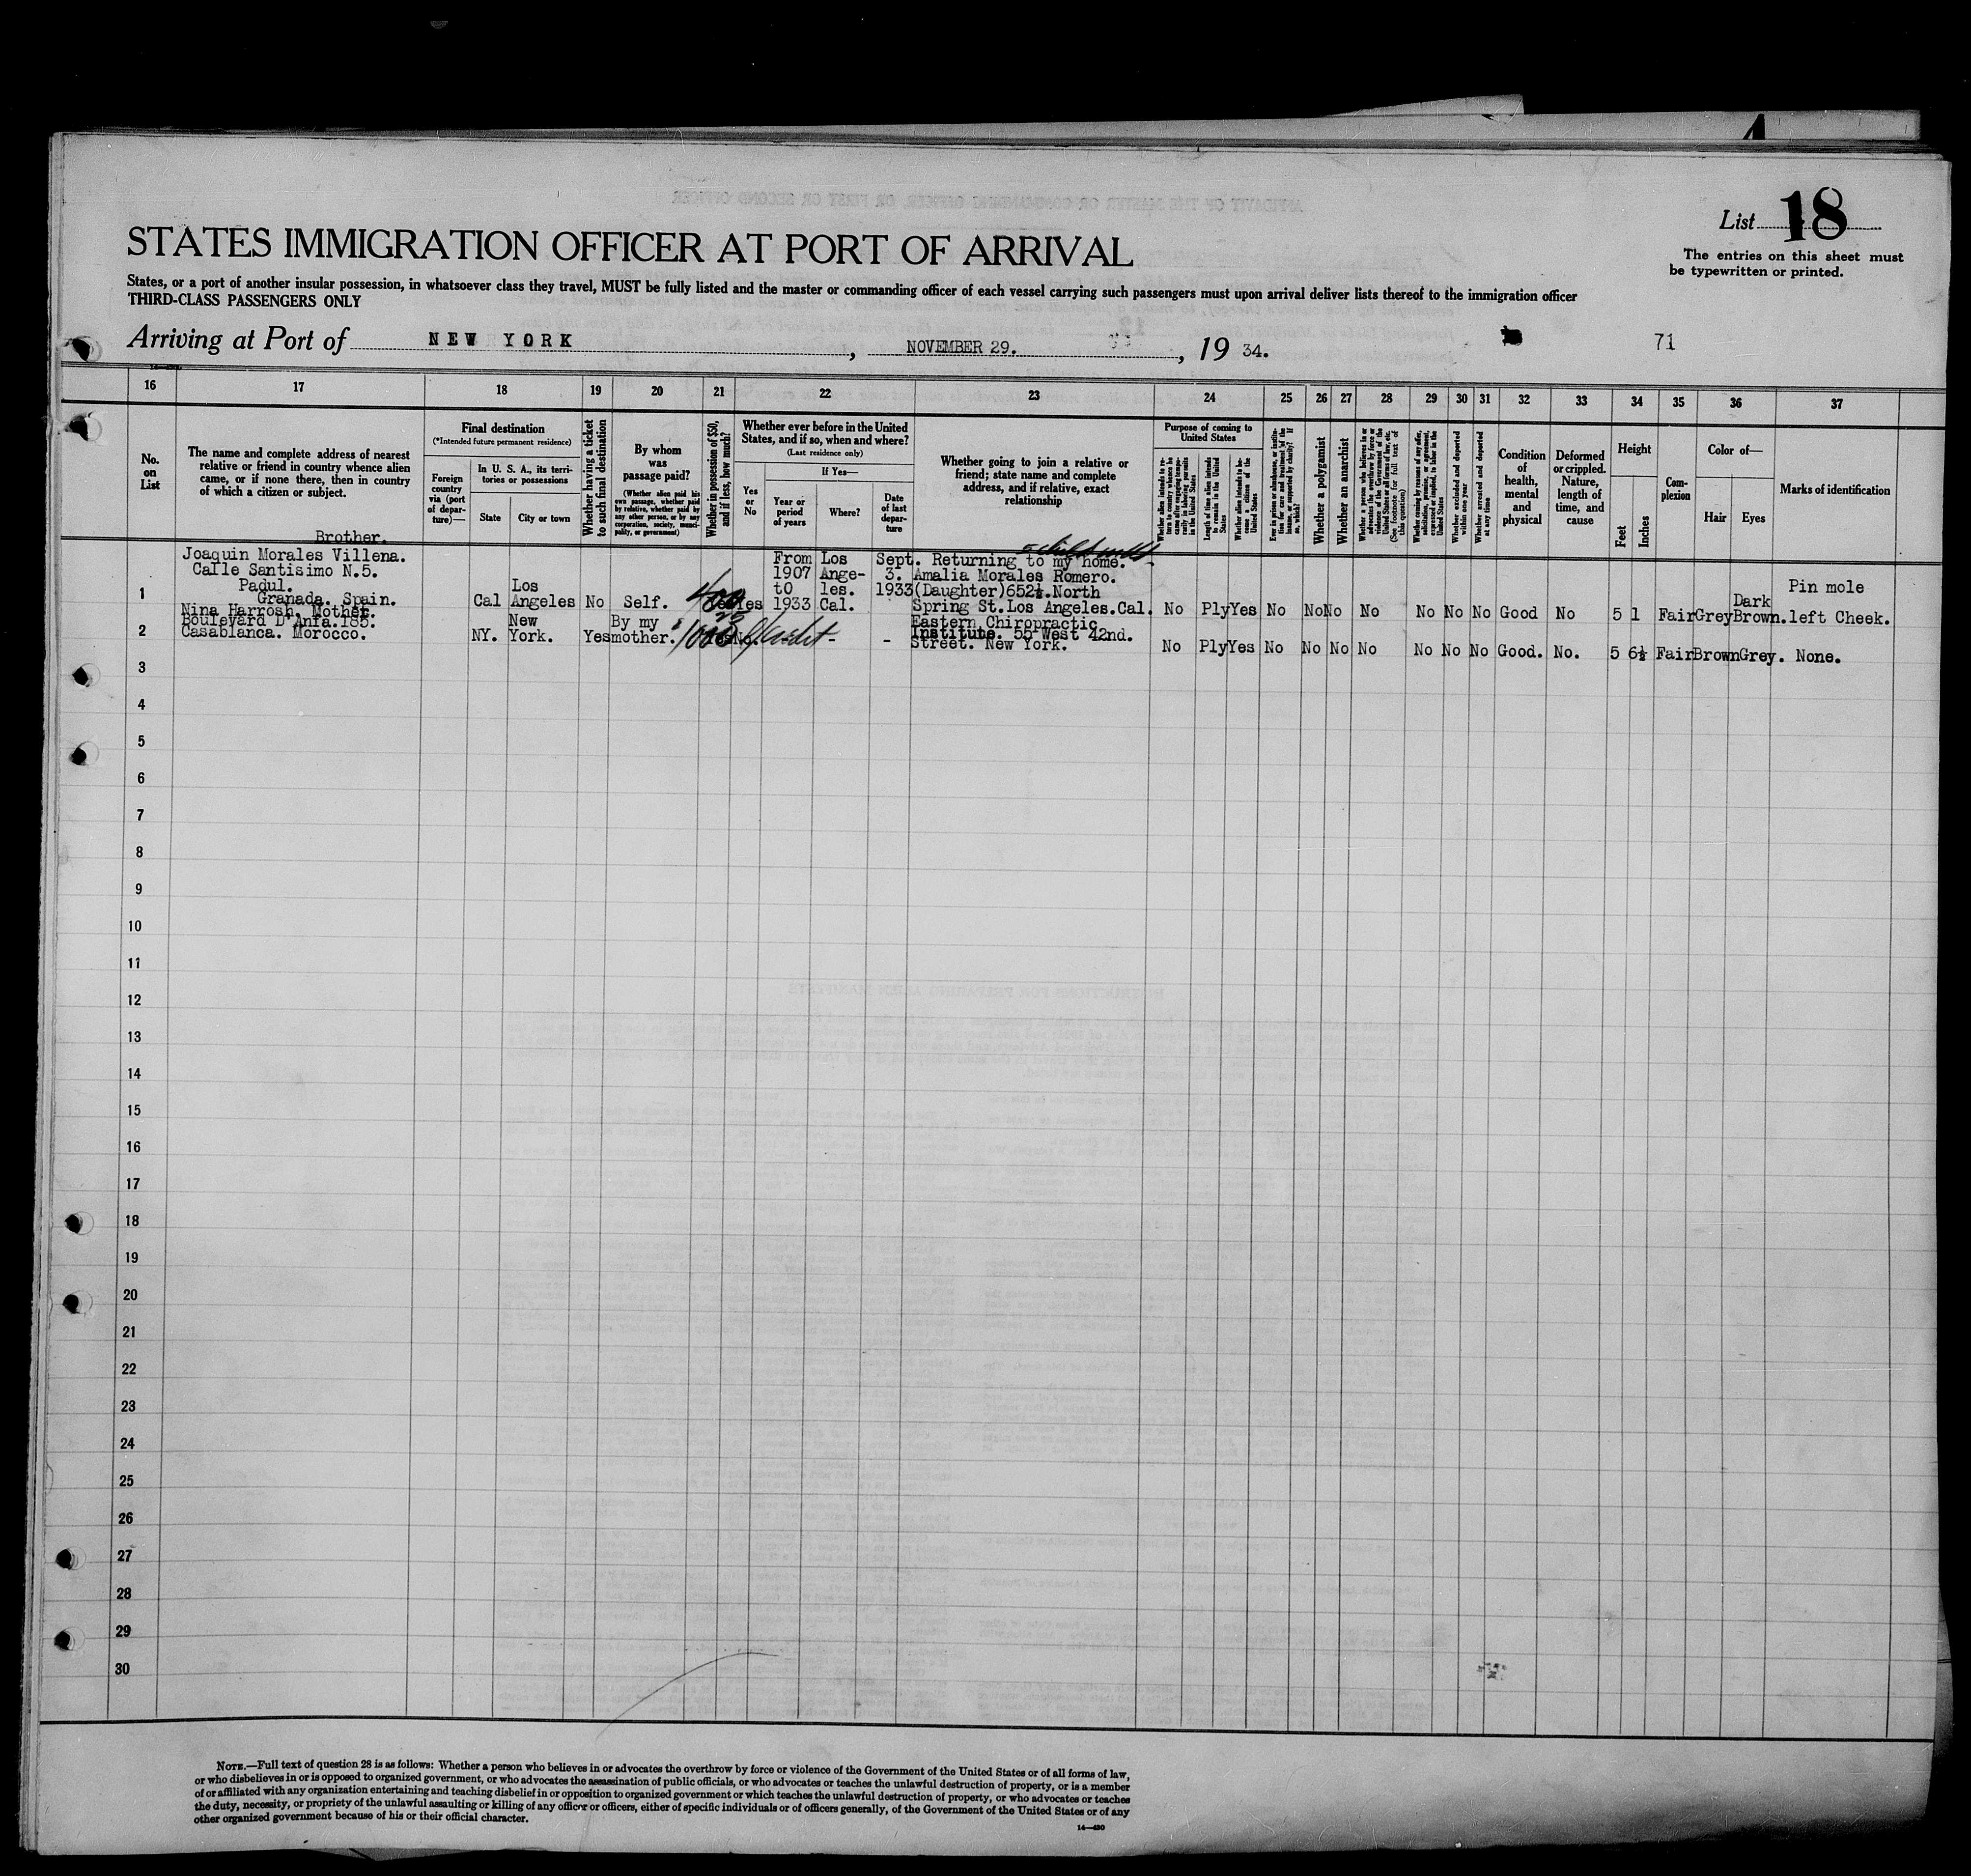 List 18
The entries on this sheet must
be typewritten or printed.
STATES IMMIGRATION OFFICER AT PORT OF ARRIVAL
States, or a port of another insular possession, in whatsoever class they travel, MUST be fully listed and the master or commanding officer of each vessel carrying such passengers must upon arrival deliver lists thereof to the immigration officer
THIRD-CLASS PASSENGERS ONLY
Arriving at Port of NEW YORK, NOVEMBER 29., 19 34. 71
16 17 18 19 20 21 22 23 24 25 26 27 28 29 30 31 32 33 34 35 36 37
No.
on
List
The name and complete address of nearest
relative or friend in country whence alien
came, or if none there, then in country
of which a citizen or subject.
Final destination
(*Intended future permanent residence)
Foreign
country
via (port
of depar-
ture)—
In U. S. A., its terri-
tories or possessions
State
City or town
Whether having a ticket
to such final destination
By whom
was
passage paid?
(Whether alien paid his
own passage, whether paid
by relative, whether paid by
any other person, or by any
corporation, society, munici-
pality, or government)
Whether in possession of $50,
and if less, how much?
Whether ever before in the United
States, and if so, when and where?
(Last residence only)
Yes
or
No
If Yes—
Year or
period
of years
Where?
Date
of last
depar-
ture
Whether going to join a relative or
friend; state name and complete
address, and if relative, exact
relationship
Purpose of coming to
United States
Whether alien intends to re-
turn to country whence he
came after engaging tempo-
rarily in laboring pursuits
in the United States
Length of time alien intends
to remain in the United
States
Whether alien intends to be-
come a citizen of the
United States
Ever in prison or almshouse, or institu-
tion for care and treatment of the
insane, or supported by charity? If
so, which?
Whether a polygamist
Whether an anarchist
Whether a person who believes in or
advocates the overthrow by force or
violence of the Government of the
United States or all forms of law, etc.
(See footnote for full text of
this question)
Whether coming by reason of any offer,
solicitation, promise, or agreement,
expressed or implied, to labor in the
United States
Whether excluded and deported
within one year
Whether arrested and deported
at any time
Condition
of
health,
mental
and
physical
Deformed
or crippled.
Nature,
length of
time, and
cause
Height
Feet
Inches
Com-
plexion
Color of—
Hair
Eyes
Marks of identification
Brother.
Joaquin Morales Villena.
Calle Santisimo N.5.
Padul.
Granada. Spain.
1
Cal
Los
Angeles
No
Self.
400
Yes
From
1907
to
1933
Los
Ange-
les.
Cal.
Sept.
3.
1933
Returning to my home.
Amalia Morales Romero.
(Daughter)652½.North
Spring St.Los Angeles.Cal.
No Ply Yes No No No No No No No Good No 5 1 Fair Grey
Dark
Brown.
Pin mole
left Cheek.
Nina Harrosh. Mother.
Boulevard D'Anfa.185.
Casablanca. Morocco.
2
NY.
New
York.
Yes
By my
mother.
1000
No.
-
-
Eastern Chiropractic
Institute. 55 West 42nd.
Street. New York.
No Ply Yes No No No No No No No Good. No. 5 6½ Fair Brown Grey. None.
3
4
5
6
7
8
9
10
11
12
13
14
15
16
17
18
19
20
21
22
23
24
25
26
27
28
29
30
NOTE.—Full text of question 28 is as follows: Whether a person who believes in or advocates the overthrow by force or violence of the Government of the United States or of all forms of law,
or who disbelieves in or is opposed to organized government, or who advocates the assassination of public officials, or who advocates or teaches the unlawful destruction of property, or is a member
of or affiliated with any organization entertaining and teaching disbelief in or opposition to organized government or which teaches the unlawful destruction of property, or who advocates or teaches
the duty, necessity, or propriety of the unlawful assaulting or killing of any officer or officers, either of specific individuals or of officers generally, of the Government of the United States or of any
other organized government because of his or their official character.
14—430